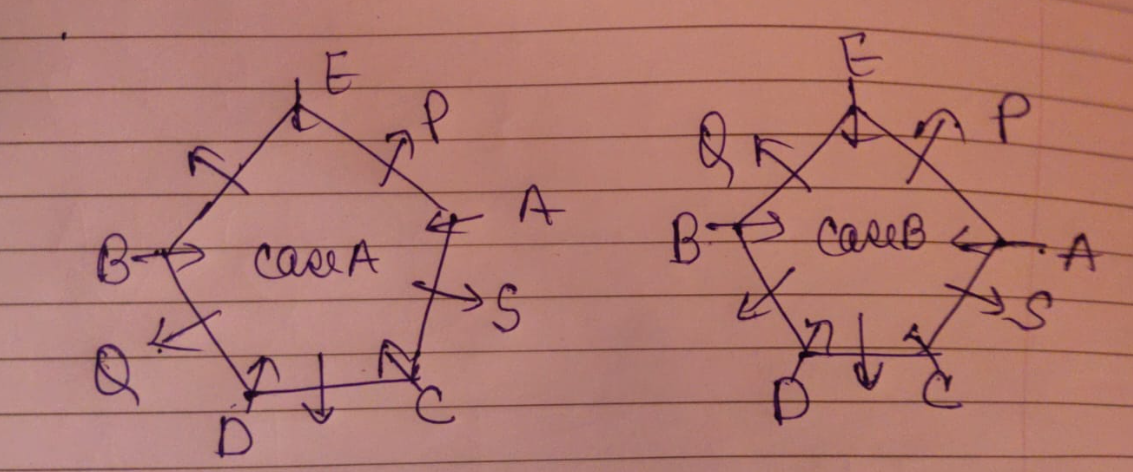 E
P
A
B
case A
S
Q
D
C
E
Q
P
B
case B
A
S
D
C